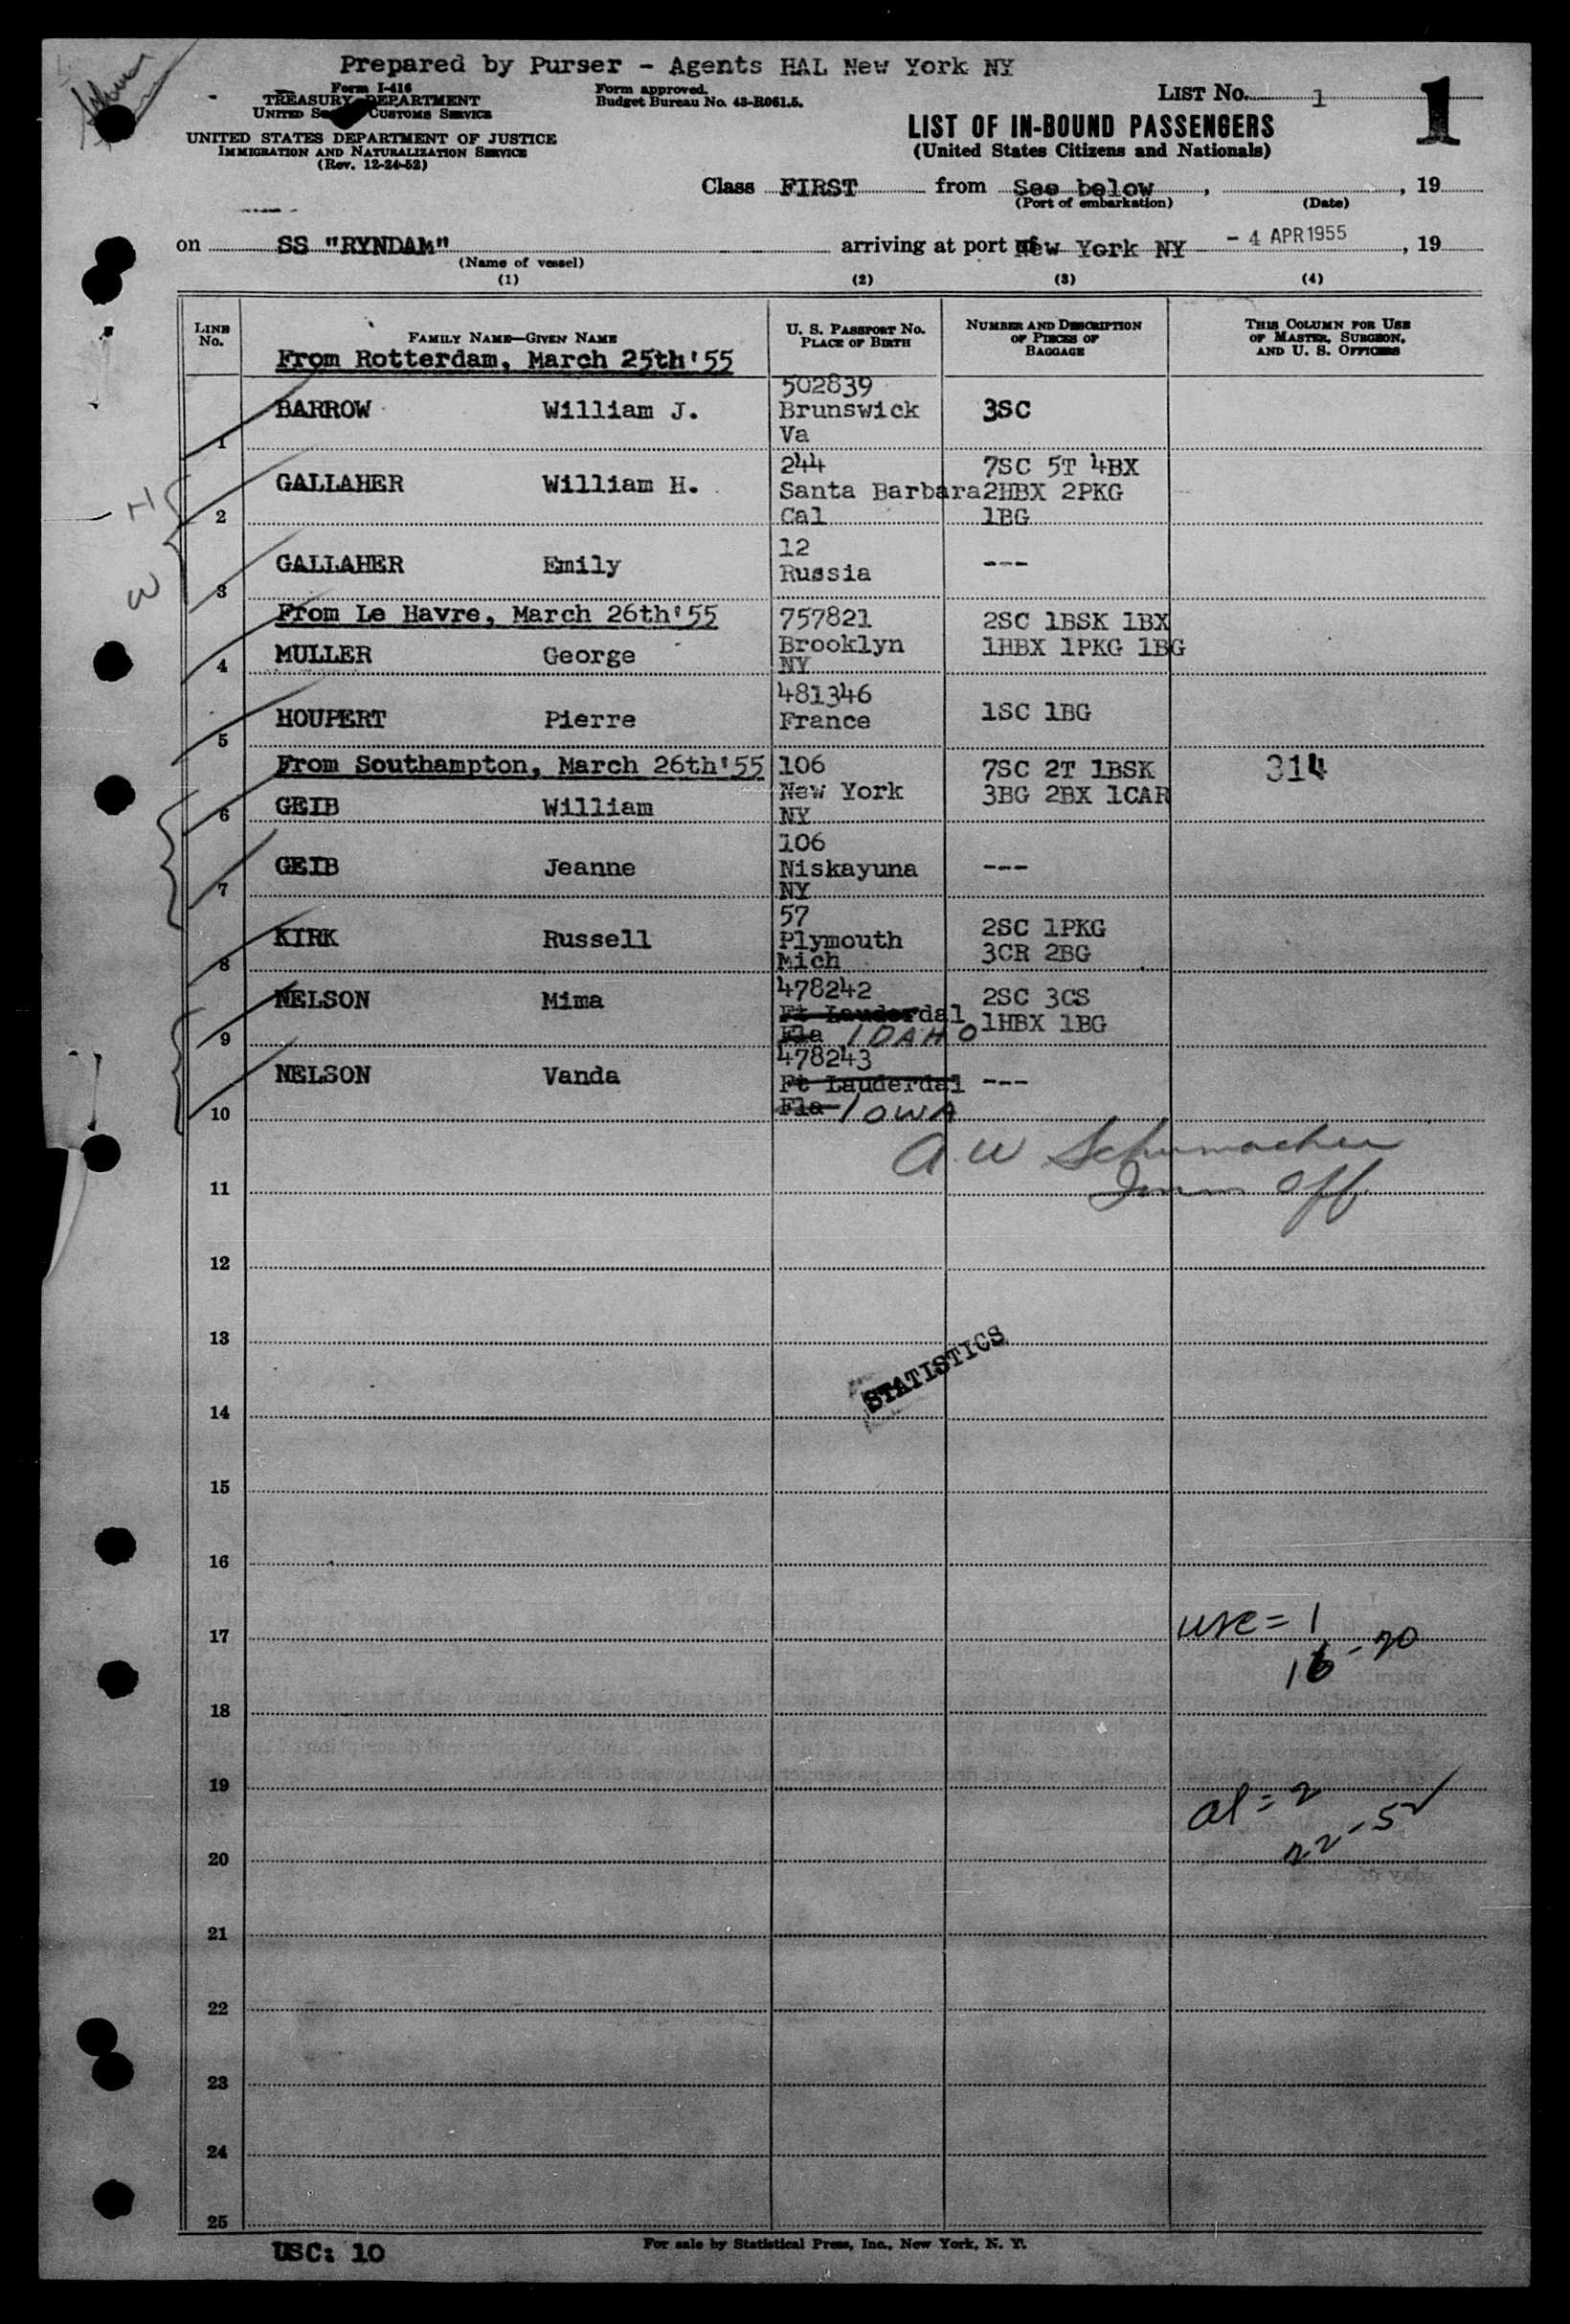 Prepared by Purser - Agents HAL New York NY
Form I-416
TREASURY DEPARTMENT
UNITED CUSTOMS SERVICE
UNITED STATES DEPARTMENT OF JUSTICE
IMMIGRATION AND NATURALIZATION SERVICE
(Rev. 12-24-52)
Form approved.
Budget Bureau No. 43-R061.5.
LIST NO. 1
1
LIST OF IN-BOUND PASSENGERS
(United States Citizens and Nationals)
Class FIRST from See below, , 19
(Port of embarkation) (Date)
on SS "RYNDAM" arriving at port of New York NY - 4 APR 1955, 19
(Name of vessel)
(1) (2) (3) (4)
LINE No. FAMILY NAME—GIVEN NAME U. S. PASSPORT NO. PLACE OF BIRTH NUMBER AND DESCRIPTION OF PIECES OF BAGGAGE THIS COLUMN FOR USE OF MASTER, SURGEON, AND U. S. OFFICERS
From Rotterdam, March 25th'55
1 BARROW William J. 502839 Brunswick Va 3SC
2 GALLAHER William H. 244 Santa Barbara Cal 7SC 5T 4BX 2HBX 2PKG 1BG
H
3 GALLAHER Emily 12 Russia ---
W
From Le Havre, March 26th'55
4 MULLER George 757821 Brooklyn NY 2SC 1BSK 1BX 1HBX 1PKG 1BG
5 HOUPERT Pierre 481346 France 1SC 1BG
From Southampton, March 26th'55
6 GEIB William 106 New York NY 7SC 2T 1BSK 3BG 2BX 1CAR 314
7 GEIB Jeanne 106 Niskayuna NY ---
8 KIRK Russell 57 Plymouth Mich 2SC 1PKG 3CR 2BG
9 NELSON Mima 478242 Ft Lauderdal Fla IDAHO 2SC 3CS 1HBX 1BG
10 NELSON Vanda 478243 Ft Lauderdal Fla IOWA ---
A W Schumacher
Imm Off.
11
12
13
STATISTICS
14
15
16
17 usc = 1
16 - 20
18
19
al = 2
22 - 52
20
21
22
23
24
25
USC: 10
For sale by Statistical Press, Inc., New York, N. Y.